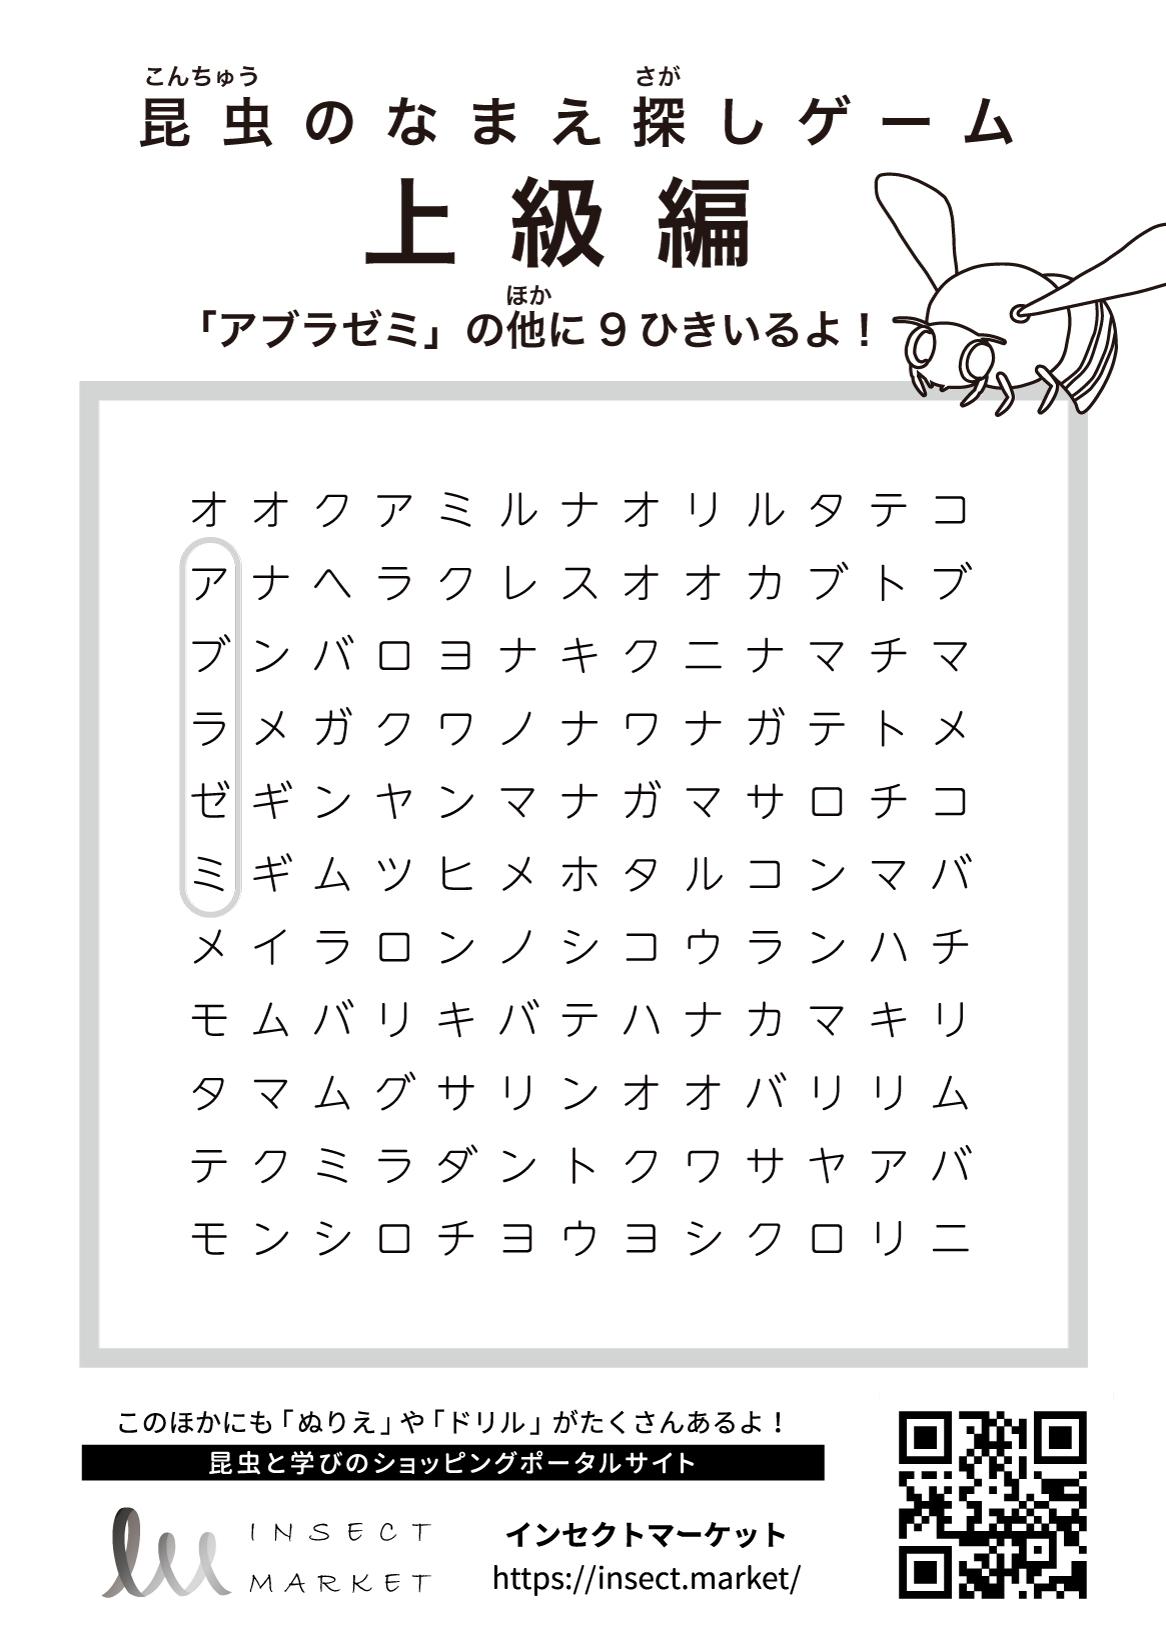 こんちゅう さが
昆虫のなまえ探しゲーム
上級編
ほか
「アブラゼミ」の他に9ひきいるよ！
オオクアミルナオリルタテコ
アナヘラクレスオオカブトブ
ブンバロヨナキクニナマチマ
ラメガクワノナワナガテトメ
ゼギンヤンマナガマサロチコ
ミギムツヒメホタルコンマバ
メイラロンノシコウランハチ
モムバリキバテハナカマキリ
タマムグサリンオオバリリム
テクミラダントクワサヤアバ
モンシロチョウヨシクロリニ
このほかにも「ぬりえ」や「ドリル」がたくさんあるよ！
昆虫と学びのショッピングポータルサイト
INSECT
MARKET
インセクトマーケット
https://insect.market/